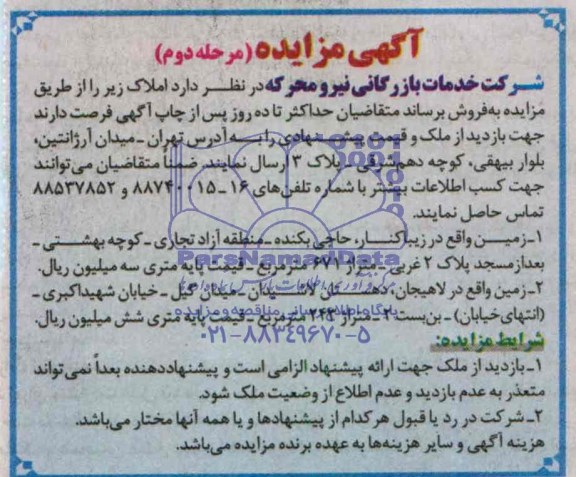 آگهی مزایده (مرحله دوم)
شرکت خدمات بازرگانی نیرو محرکه در نظر دارد املاک زیر را از طریق
مزایده به‌فروش برساند متقاضیان حداکثر تا ده روز پس از چاپ آگهی فرصت دارند
جهت بازدید از ملک و قیمت پیشنهادی را به آدرس تهران - میدان آرژانتین،
بلوار بیهقی، کوچه دهم شرقی، پلاک ۳ ارسال نمایند. ضمناً متقاضیان می‌توانند
جهت کسب اطلاعات بیشتر با شماره تلفن‌های ۱۶-۸۸۷۴۰۰۱۵ و ۸۸۵۳۷۸۵۲
تماس حاصل نمایند.
۱- زمین واقع در زیباکنار، حاجی بکنده - منطقه آزاد تجاری - کوچه بهشتی -
بعداز مسجد پلاک ۲ غربی - متراژ ۶۷۱ مترمربع - قیمت پایه متری سه میلیون ریال.
۲- زمین واقع در لاهیجان، - میدان گیل - خیابان شهید اکبری -
(انتهای خیابان) - بن‌بست ۲ - متراژ مترمربع - قیمت پایه متری شش میلیون ریال.
شرایط مزایده:
۱- بازدید از ملک جهت ارائه پیشنهاد الزامی است و پیشنهاددهنده بعداً نمی‌تواند
متعذر به عدم بازدید و عدم اطلاع از وضعیت ملک شود.
۲- شرکت در رد یا قبول هرکدام از پیشنهادها و یا همه آنها مختار می‌باشد.
هزینه آگهی و سایر هزینه‌ها به عهده برنده مزایده می‌باشد.
ParsNamadData
پایگاه اطلاع رسانی مناقصه و مزایده
۰۲۱-۸۸۳۴۹۶۷۰-۵